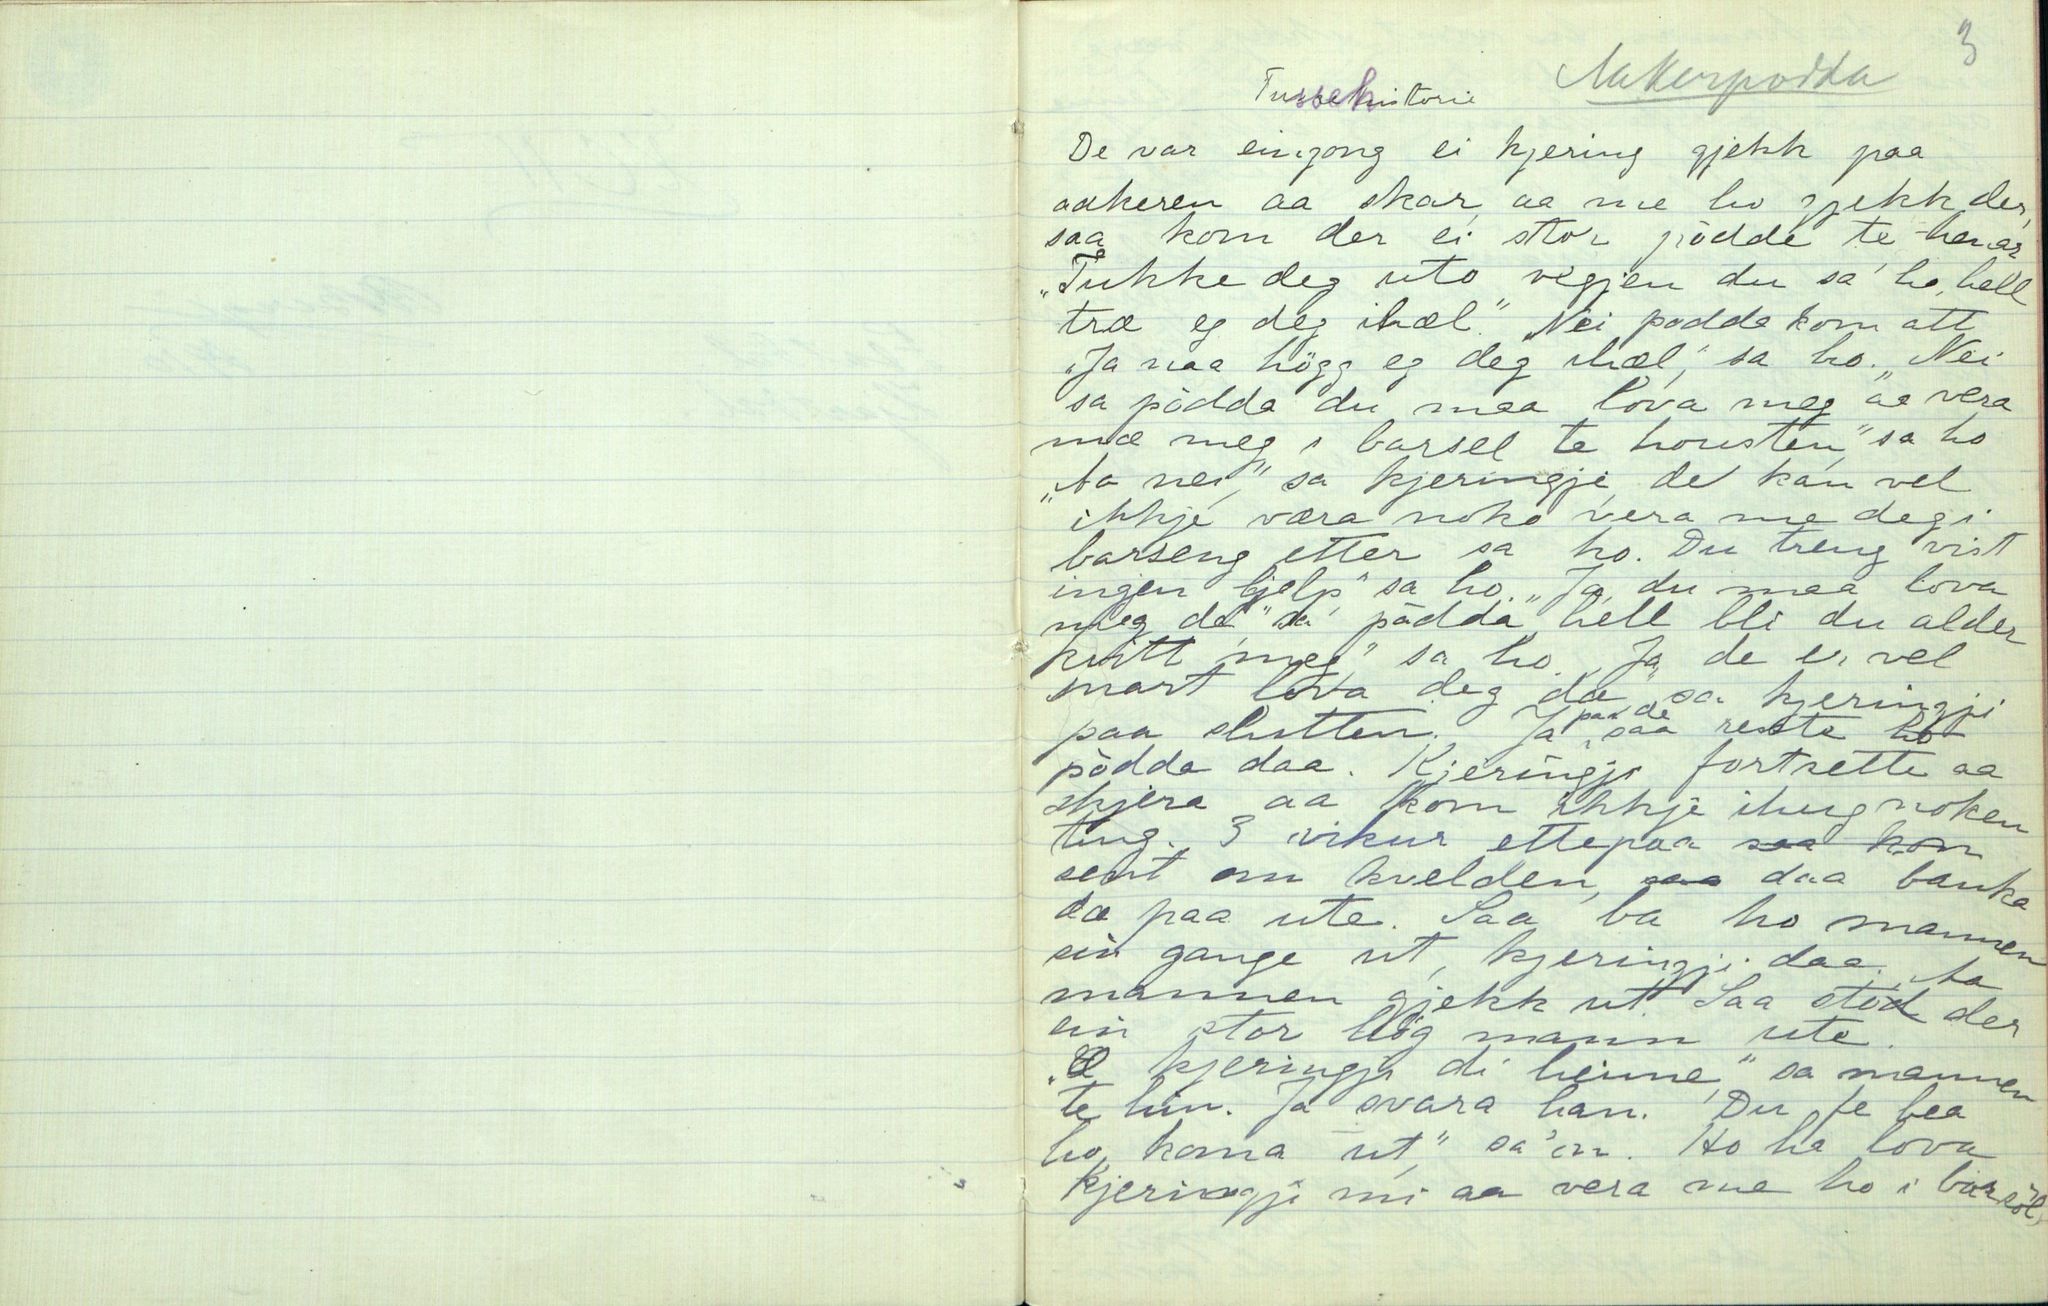 3
Aakerpodda
Tussehistorie
De var eingong ei kjering gjekk paa
aakeren aa skar, aa me ho gjekk der,
saa kom der ei stor pödde te henar
"Tukke deg uto vegjen du sa' ho, hell
træ eg deg ihæl." Nei podda kom att
"Ja naa högg eg deg ihæl," sa ho. "Nei
sa pödda du maa lova meg aa vera
mæ meg i barsel te housten," sa ho
"Aa nei," sa kjeringji, de kan vel
ikkje væra noko vera me deg i
barseng etter sa ho. Du treng vist
ingen hjelp" sa ho. "Ja, du maa lova
meg de" sa' pödda, hell bli du alder
kvitt meg" sa ho. "Ja, de er vel
mart lova deg dæ" sa kjeringji
paa slutten. Ja paa de saa reiste ho
pödda daa. Kjeringji fortsette aa
skjera aa kom ikkje ihug noken
ting. 3 vikur ettepaa saa kom
seint om kvelden, saa daa banka
dæ paa ute. Saa ba ho mannen
sin gange ut, kjeringji daa. Aa
mannen gjekk ut. Saa stod der
ein stor höig mann ute.
"Æ kjeringji di heime," sa mannen
te hin. Ja svara han. "Du fe bea
ho koma ut," sa'n. Ho ha lova
kjeringji mi aa vera me ho i barsöl,